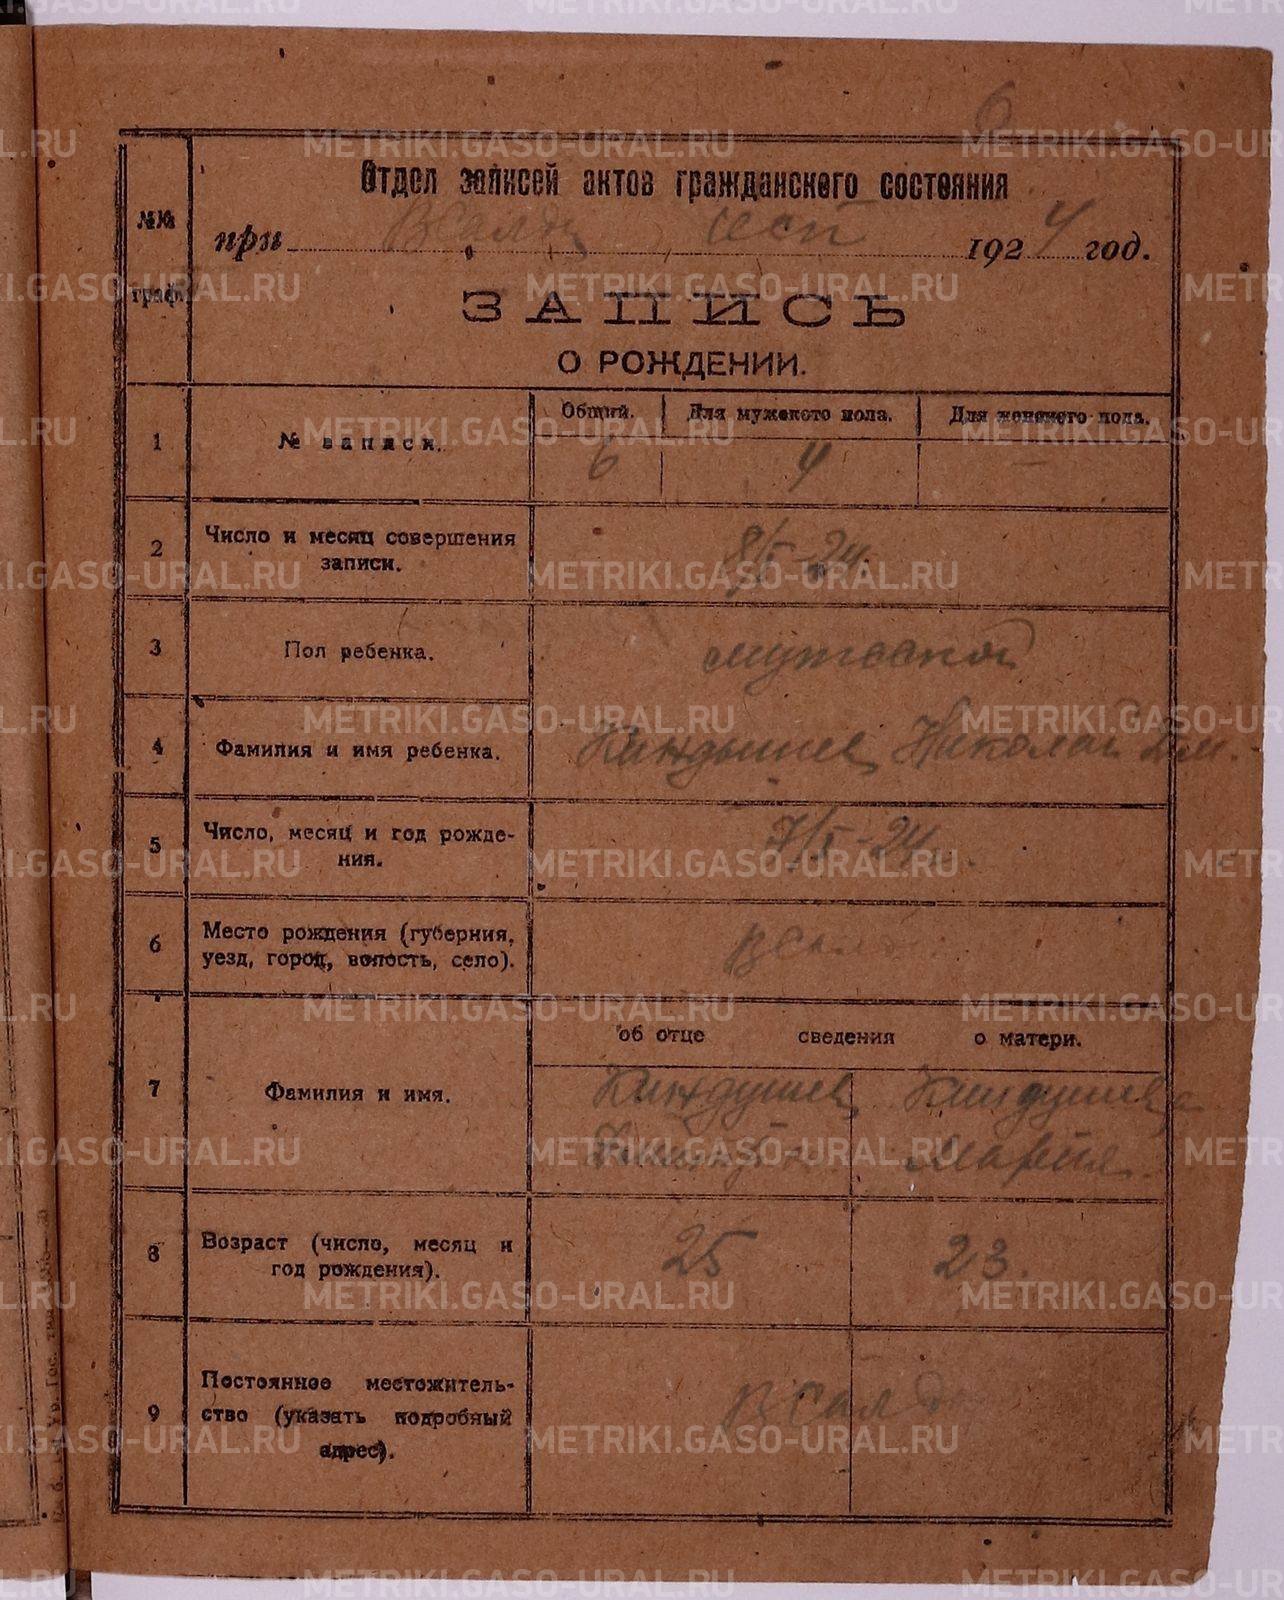 6
Отдел записей актов гражданского состояния
№№ граф.
при ВСалд 1924 год.
ЗАПИСЬ
О РОЖДЕНИИ.
Общий. Для мужского пола. Для женского пола.
1 № записи. 6 4 —
2 Число и месяц совершения записи. 8/I-24.
3 Пол ребенка. мужской
4 Фамилия и имя ребенка. Киндышев Николай Дм.
5 Число, месяц и год рожде-
ния. 7/I-24.
6 Место рождения (губерния,
уезд, город, волость, село). ВСалд
об отце сведения о матери.
7 Фамилия и имя. Киндушев Киндушева
Мария.
8 Возраст (число, месяц и
год рождения). 25 23.
9 Постоянное местожитель-
ство (указать подробный
адрес). ВСалд
METRIKI.GASO-URAL.RU